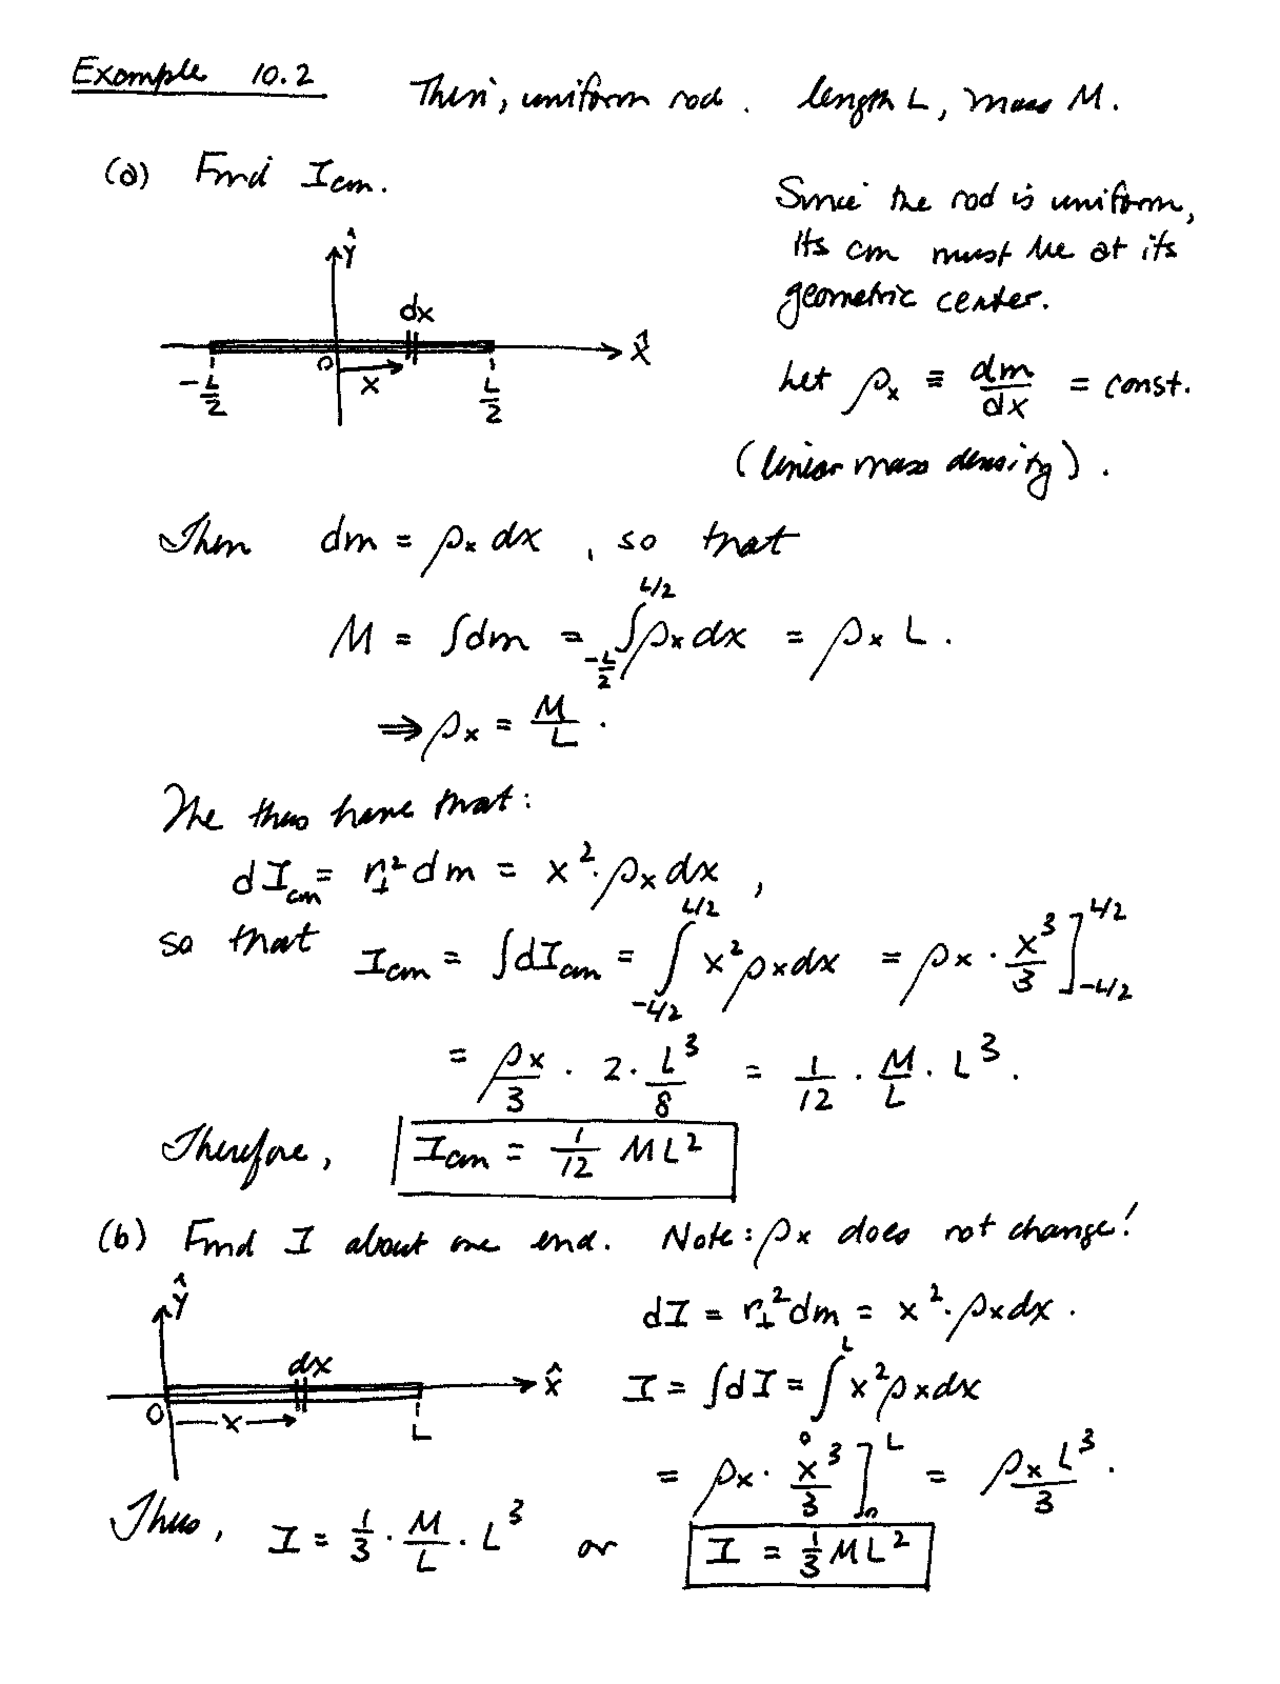 Example 10.2 Thin, uniform rod. length L, mass M.
(a) Find Icm.
Since the rod is uniform,
its cm must be at its
geometric center.
Let ρx ≡ dm/dx = const.
(linear mass density).
ŷ
dx
x̂
O
x
-L/2
L/2
Then dm = ρx dx, so that
M = ∫dm = ∫_{-L/2}^{L/2} ρx dx = ρx L.
⇒ ρx = M/L.
We thus have that:
dIcm = r⊥² dm = x²·ρx dx,
so that Icm = ∫dIcm = ∫_{-L/2}^{L/2} x² ρx dx = ρx · x³/3 ]_{-L/2}^{L/2}
= ρx/3 · 2 · L³/8 = 1/12 · M/L · L³.
Therefore, Icm = 1/12 ML²
(b) Find I about one end. Note: ρx does not change!
ŷ
dx
x̂
O
x
L
dI = r⊥² dm = x²·ρx dx.
I = ∫dI = ∫_0^L x² ρx dx
= ρx · x³/3 ]_0^L = ρx L³/3.
Thus, I = 1/3 · M/L · L³ or I = 1/3 ML²